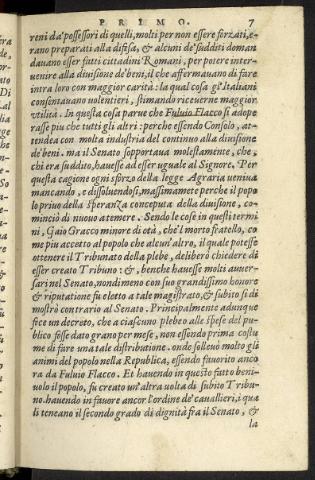 PRIMO. 7
reni da' possessori di quelli, molti per non essere sforzati, e-
rano preparati alla difesa, & alcuni de' sudditi doman
dauano esser fatti cittadini Romani, per potere inter-
uenire alla diuisione de' beni, il che affermauano di fare
intra loro con maggior carità: la qual cosa gl'Italiani
consentauano uolentieri, stimando riceuerne maggior
vtilità. In questa cosa parue che Fuluio Flacco si adope
rasse piu che tutti gli altri: perche essendo Consolo, at-
tendea con molta industria del continuo alla diuisione
de' beni. ma il Senato sopportaua molestamente, che,
chi era suddito, hauesse ad esser uguale al Signore. Per
questa cagione ogni sforzo della legge Agraria ueniua
mancando, e dissoluendosi, massimamẽte perche il popo
lo priuo della speranza conceputa della diuisione, co-
minciò di nuouo a temere. Sendo le cose in questi termi
ni, Gaio Gracco minore di età, che'l morto fratello, co
me piu accetto al popolo che alcun'altro, il quale potesse
ottenere il Tribunato della plebe, deliberò chiedere di
esser creato Tribuno: &, benche hauesse molti auuer-
sari nel Senato, nondimeno con suo grandissimo honore
& riputatione fu eletto a tale magistrato, & subito si di
mostrò contrario al Senato. Principalmente adunque
fece un decreto, che a ciascuno plebeo alle spese del pu-
blico fosse dato grano per mese, non essendo prima costu
me di fare una tale distributione. onde solleuò molto gli
animi del popolo nella Republica, essendo fauorito anco
ra da Fuluio Flacco. Et hauendo in questo fatto beni-
uolo il popolo, fu creato un'altra uolta di subito Tribu-
no. hauendo in fauore ancor l'ordine de' cauallieri, i qua
li teneano il secondo grado di dignità fra il Senato, &
la